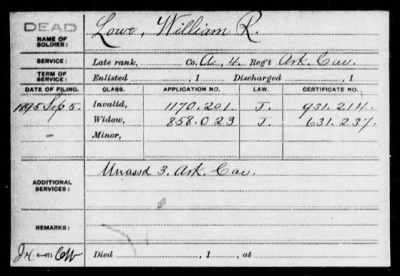 DEAD
NAME OF SOLDIER: Lowe, William R.
SERVICE: Late rank, Co. A, 4 Reg't Ark. Cav.
TERM OF SERVICE: Enlisted , 1 Discharged , 1
DATE OF FILING. CLASS. APPLICATION NO. LAW. CERTIFICATE NO.
1895 Sep 5. Invalid, 1170.201 J. 931.214.
Widow, 858.023 J. 631.237.
Minor,
ADDITIONAL SERVICES: Unassd 3. Ark. Cav.
REMARKS:
Died , 1 , at